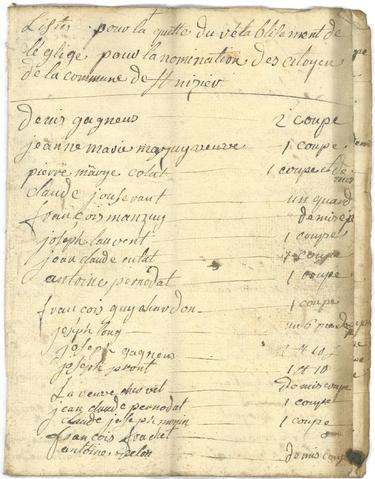 Liste pour la quitte du rétablisement de
léglise pour la nomination des citoyen
de la commune de St nizier
denis gagneur 2 coupe
jeanne marie mazuy veuve 1 coupe
pierre marye colat 1 coupe et de
claude jouserant un quard
francois manzuy demi
joseph lauvent 1 coupe
jean claude culat 1 coupe
antoine pernodat 1 coupe
francois guychardon 1 coupe
joseph long
joseph gagneur
joseph pront
la veuve
jean claude pernodat 1 coupe
claude joseph morin 1 coupe
francois fouchet
antoine demi coup